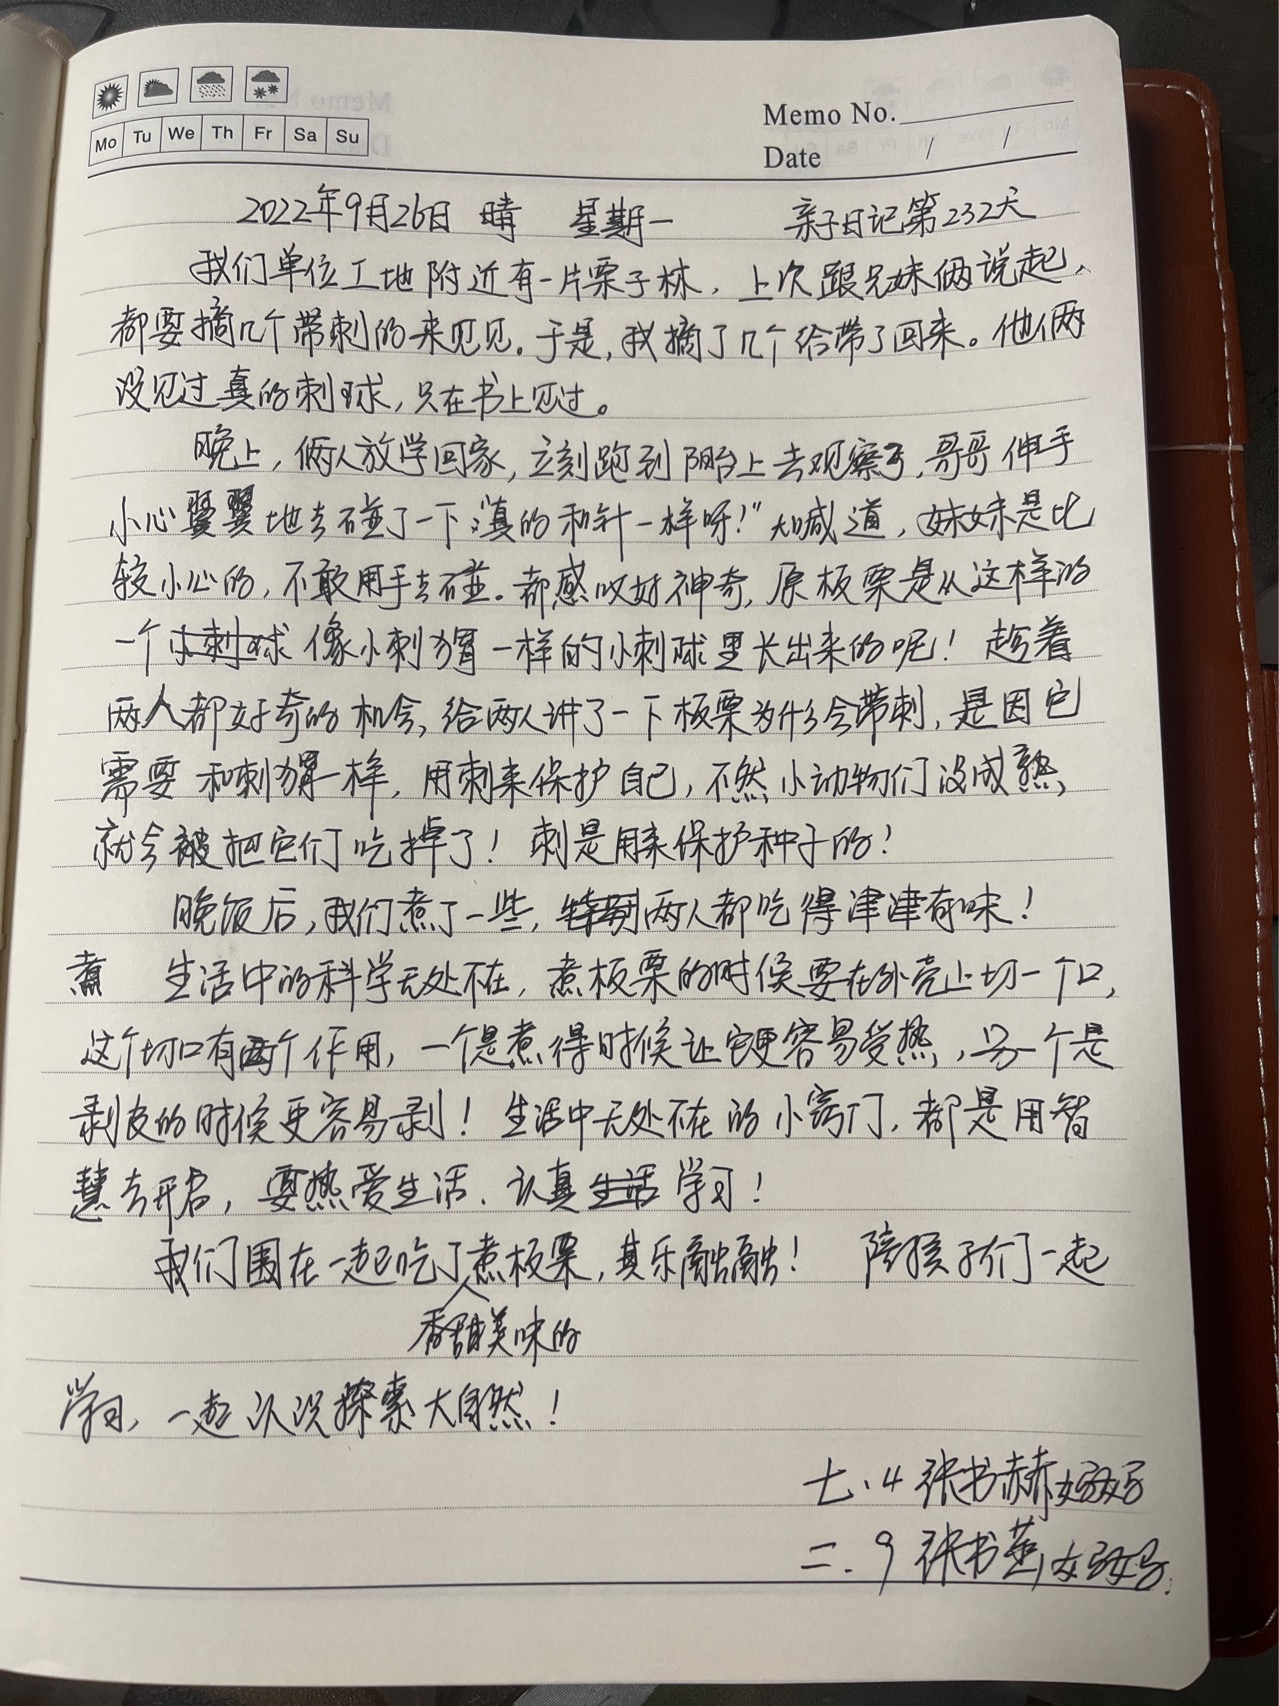 Mo Tu We Th Fr Sa Su
Memo No.
Date / /
2022年9月26日 晴 星期一 亲子日记第232天
我们单位工地附近有一片栗子林，上次跟兄妹俩说起，
都要摘几个带刺的来见见。于是，我摘了几个给带了回来。他俩
没见过真的刺球，只在书上见过。
晚上，俩人放学回家，立刻跑到阳台上去观察了，哥哥伸手
小心翼翼地去碰了一下："真的和针一样呀！"大喊道，妹妹是比
较小心的，不敢用手去碰。都感叹好神奇，原板栗是从这样的
一个小刺球像小刺猬一样的小刺球里长出来的呢！趁着
两人都好奇的机会，给两人讲了一下板栗为什么会带刺，是因它
需要和刺猬一样，用刺来保护自己，不然小动物们没成熟，
就会被把它们吃掉了！刺是用来保护种子的！
晚饭后，我们煮了一些，特别两人都吃得津津有味！
煮 生活中的科学无处不在，煮板栗的时候要在外壳上切一个口，
这个切口有两个作用，一个是煮得时候让它更容易受热，另一个是
剥皮的时候更容易剥！生活中无处不在的小窍门，都是用智
慧去开启，要热爱生活、认真生活学习！
我们围在一起吃了煮板栗，其乐融融！ 陪孩子们一起
香甜美味的
学习，一起认识探索大自然！
七.4 张书赫妈妈
二.9 张书燕妈妈